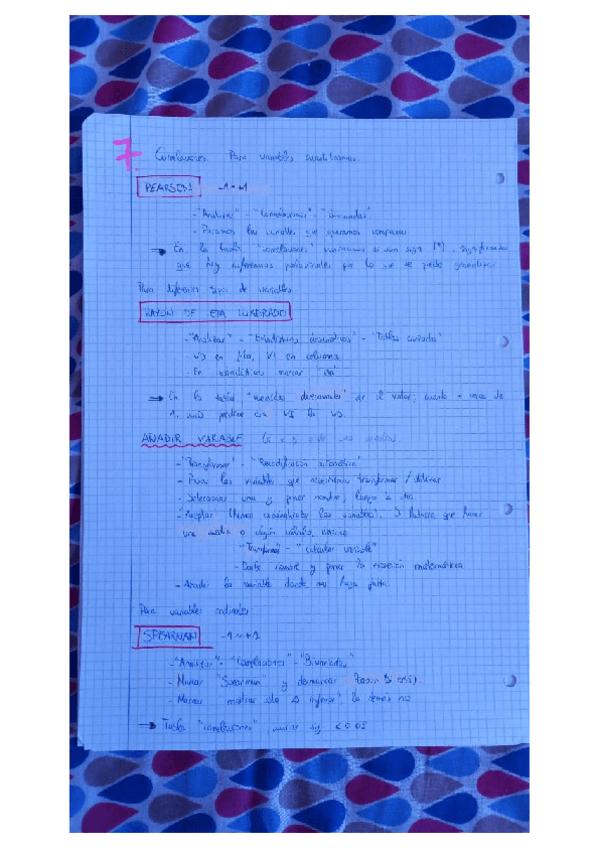 7 Correlaciones. Para variables cuantitativas.
PEARSON -1 - +1
- "Analizar" - "Correlaciones" - "Bivariadas"
- Pasamos las variables que queramos comparar
→ En la tabla "correlaciones" miramos si son sign (*).
que hay se puede generalizar
Para diferentes tipos de variables
RAZON DE ETA CUADRADO
- "Analizar" - "Estadísticos descriptivos" - "Tablas cruzadas"
- VD en fila, VI en columna
- En estadísticos marcar "eta"
→ En la tabla "medidas direccionales" da el valor, cuanto + cerca de
1, más predice VI la VD.
AÑADIR VARIABLE
- "Transformar" - "Recodificación automática"
- Pasar las variables que necesitamos transformar / utilizar
- Seleccionar una y poner nombre, luego la otra
- "Aceptar" que hacer
una media o algún cálculo, vamos
- "Transformar" - "calcular variable"
- Darle nombre y poner la expresión matemática
- Añadir la variable donde nos haga falta
Para variables ordinales
SPEARMAN -1 ~ +1
- "Analizar" - "Correlaciones" - "Bivariadas"
- Marcar "Spearman" y desmarcar
- Marcar mostrar sólo Δ inferior, lo demás no
→ Tabla "correlaciones", mirar sig < 0.05